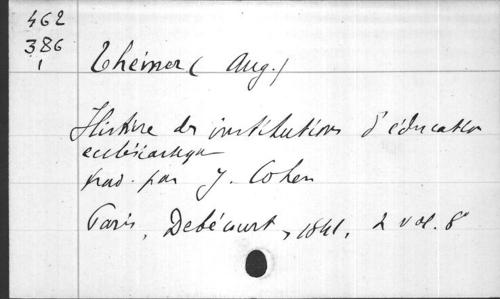 462
386
1
Theiner (Aug.)
Histoire des institutions d'éducation
ecclésiastique
trad. par J. Cohen
Paris, Debécourt, 1841, 2 vol. 8°